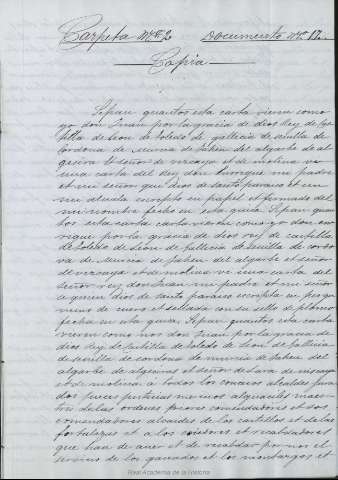 Carpeta nº 2 Documento nº 17.
Copia
Sepan quantos esta carta vieren como
yo don Juan por la gracia de dios Rey de Cas
tilla de Leon de toledo de gallicia de sevilla de
Cordova de Murcia de Jahen del algarbe de al
gecira et señor de vizcaya et de molina vi
una carta del Rey don Enrrique mi padre
et mi señor que dios de santo paraiso et un
mi alvala escripto en papel et firmado del
mi nombre fecho en esta guisa. Sepan quan
tos esta carta vieren como yo don en
rique por la gracia de dios rey de castilla
de toledo de Leon de gallicia de Sevilla de cordo
va de Murcia de Jahen del algarbe et señor
de vizcaya et de molina vi una carta del
Señor rey don Juan mi padre et mi señor
a quien dios de santo paraiso escripta en perga
mino de cuero et sellada con su sello de plomo
fecha en esta guisa. Sepan quantos esta carta
vieren como nos don Juan por la gracia de
dios Rey de Castilla de toledo de Leon de gallicia
de sevilla de cordova de murcia de Jahen del
algarbe de algecira et señor de Lara de viscaya
et de molina a todos los concejos alcaldes jura
dos jueces justicias merinos alguaciles maes
tres de las ordenes priores comendadores et sos
comendadores alcaides de los castillos et de las
fortalezas et a los et recabdadores
que han de aver et de recabdar por nos el
servicio de los ganados et los montazgos et
Real Academia de la Historia